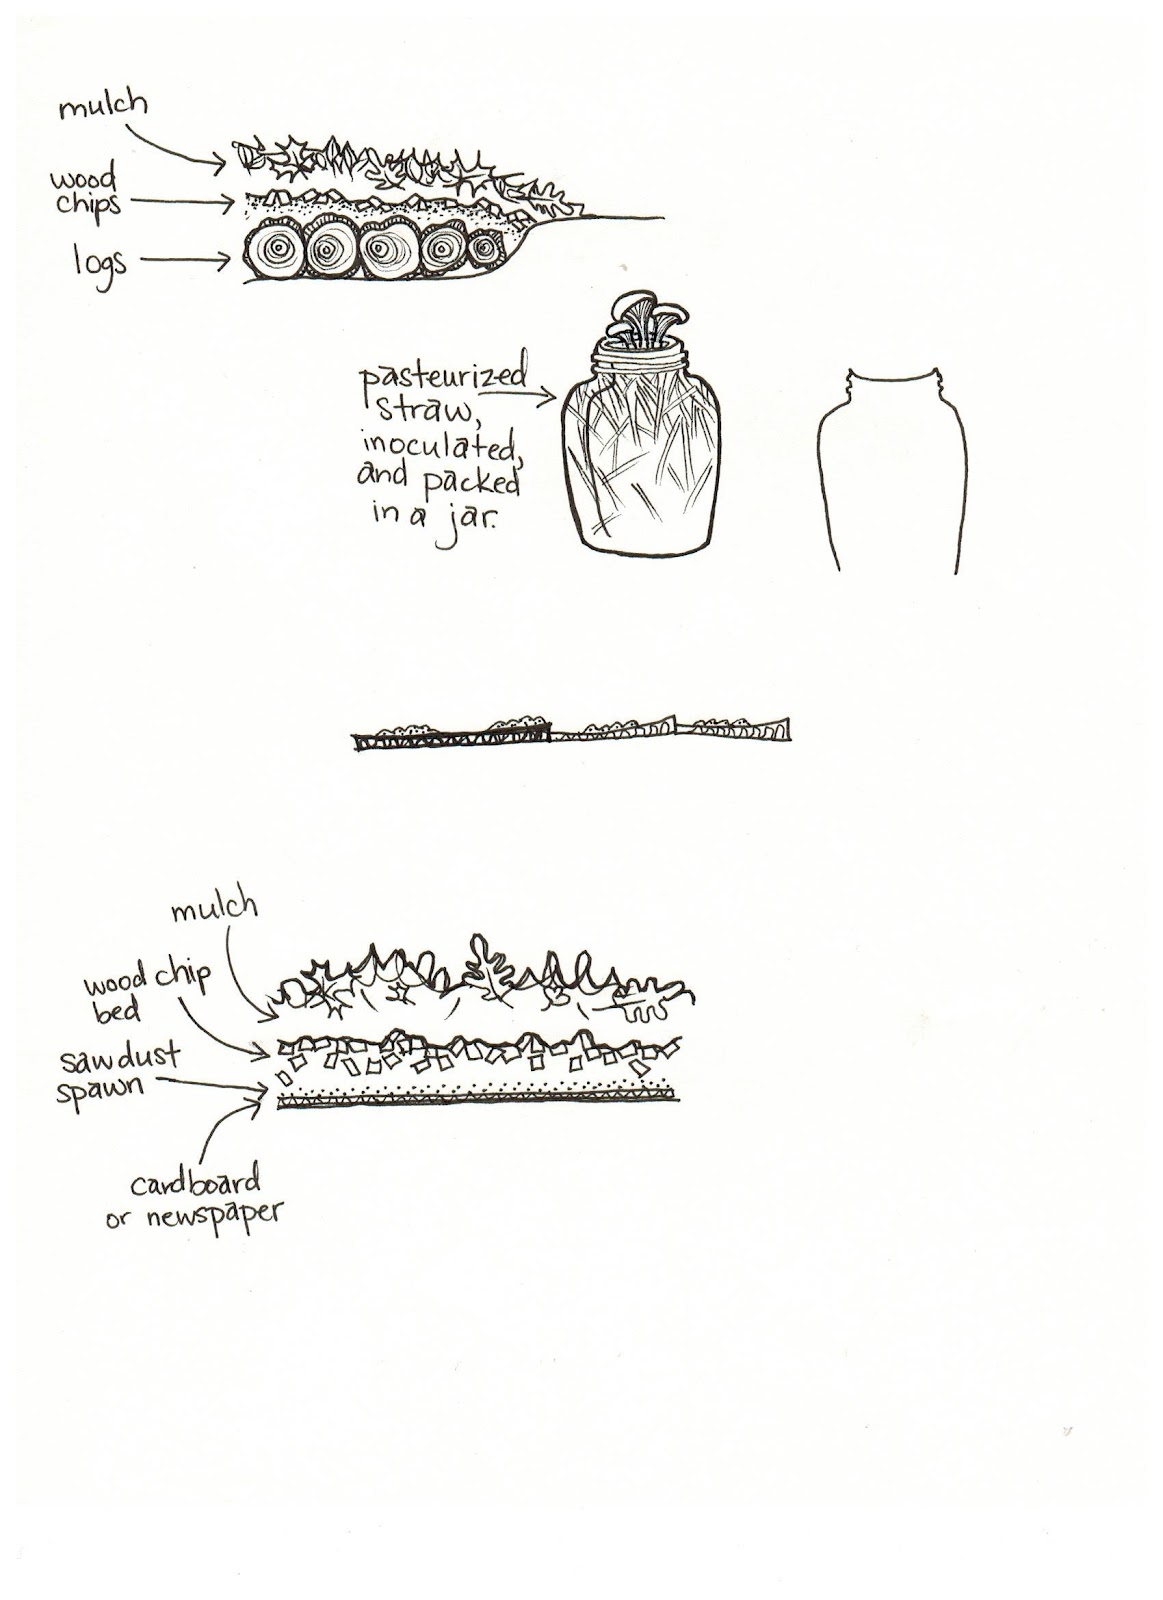 mulch
wood
chips
logs
pasteurized
straw,
inoculated,
and packed
in a jar.
mulch
wood chip
bed
sawdust
spawn
cardboard
or newspaper